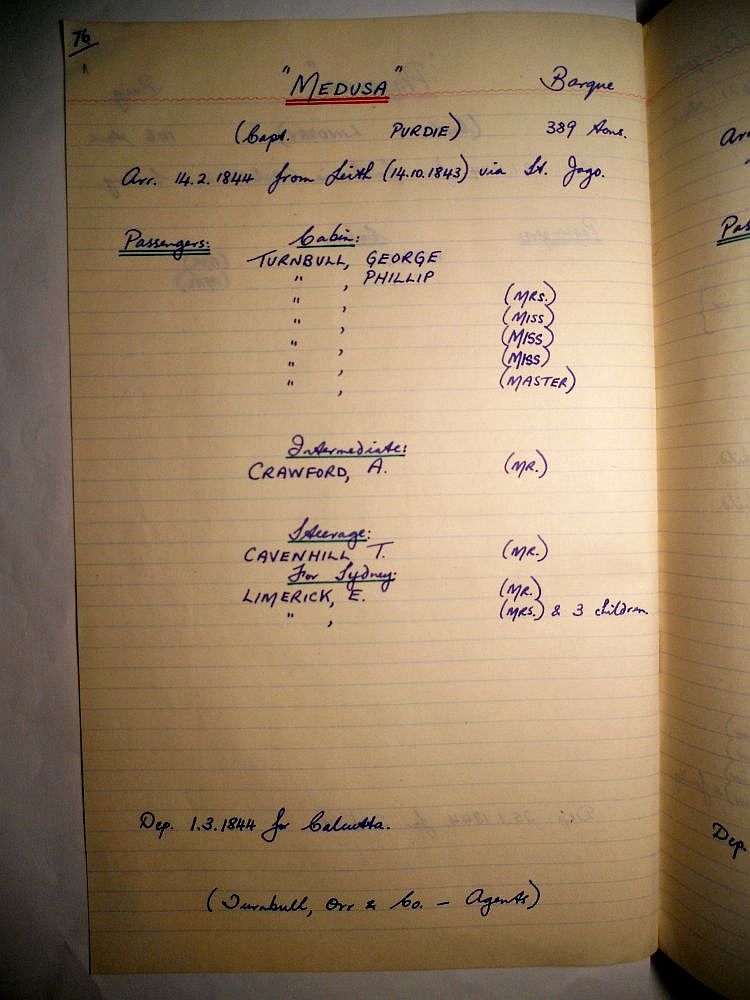 76
"MEDUSA" Barque
(Capt. PURDIE) 389 tons.
Arr. 14.2.1844 from Leith (14.10.1843) via St. Jago.
Passengers: Cabin:
TURNBULL, GEORGE
" , PHILLIP
" , (MRS.)
" , (MISS)
" , (MISS)
" , (MISS)
" , (MASTER)
Intermediate:
CRAWFORD, A. (MR.)
Steerage:
CAVENHILL T. (MR.)
For Sydney:
LIMERICK, E. (MR.)
" , (MRS.) & 3 children.
Dep. 1.3.1844 for Calcutta.
(Turnbull, Orr & Co. — Agents)
Dep.